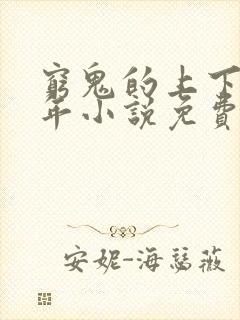 窮鬼的上下
年小說免費
安妮-海瑟薇